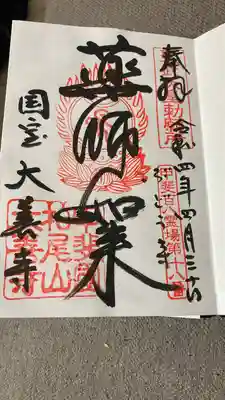 奉拝
令和四年四月三日
甲斐百八霊場第十八番
薬師如来
国宝 大善寺
甲斐国
柏尾山
大善寺